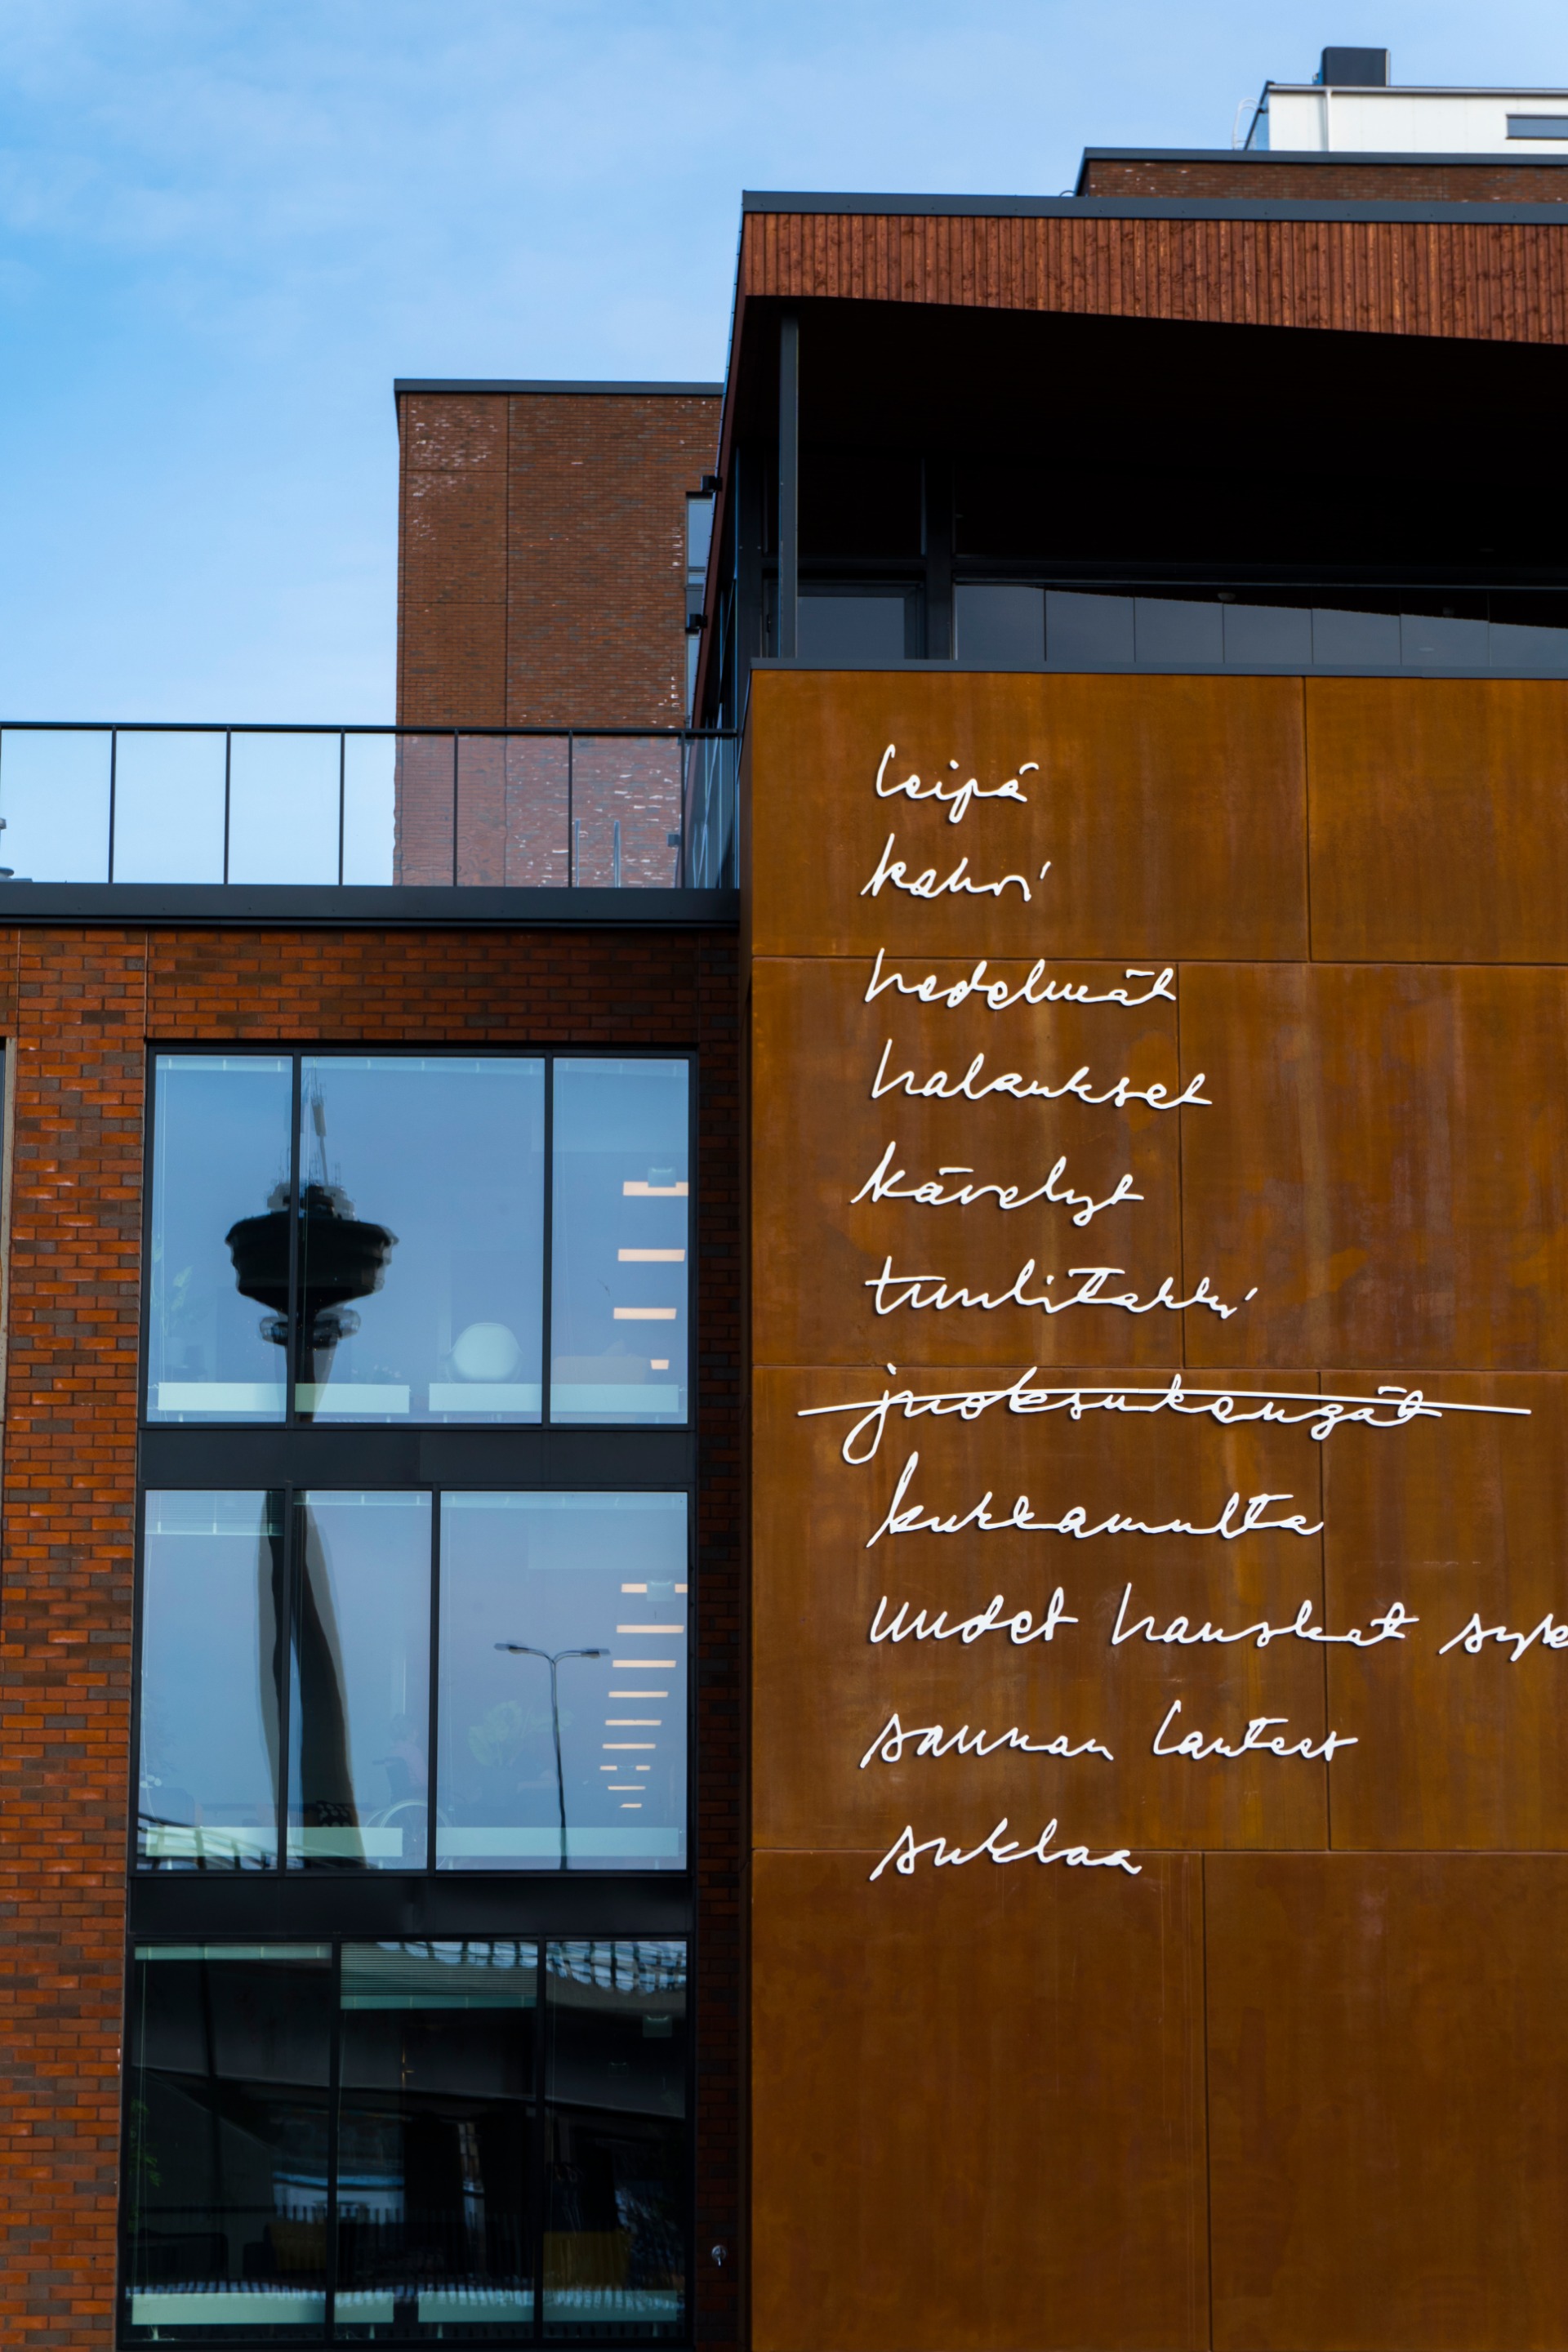 leipä
kahvi
hedelmät
halaukset
kävelyt
tuulitakki
juoksukengät
kukkamulta
uudet hanskat
saunan lauteet
suklaa